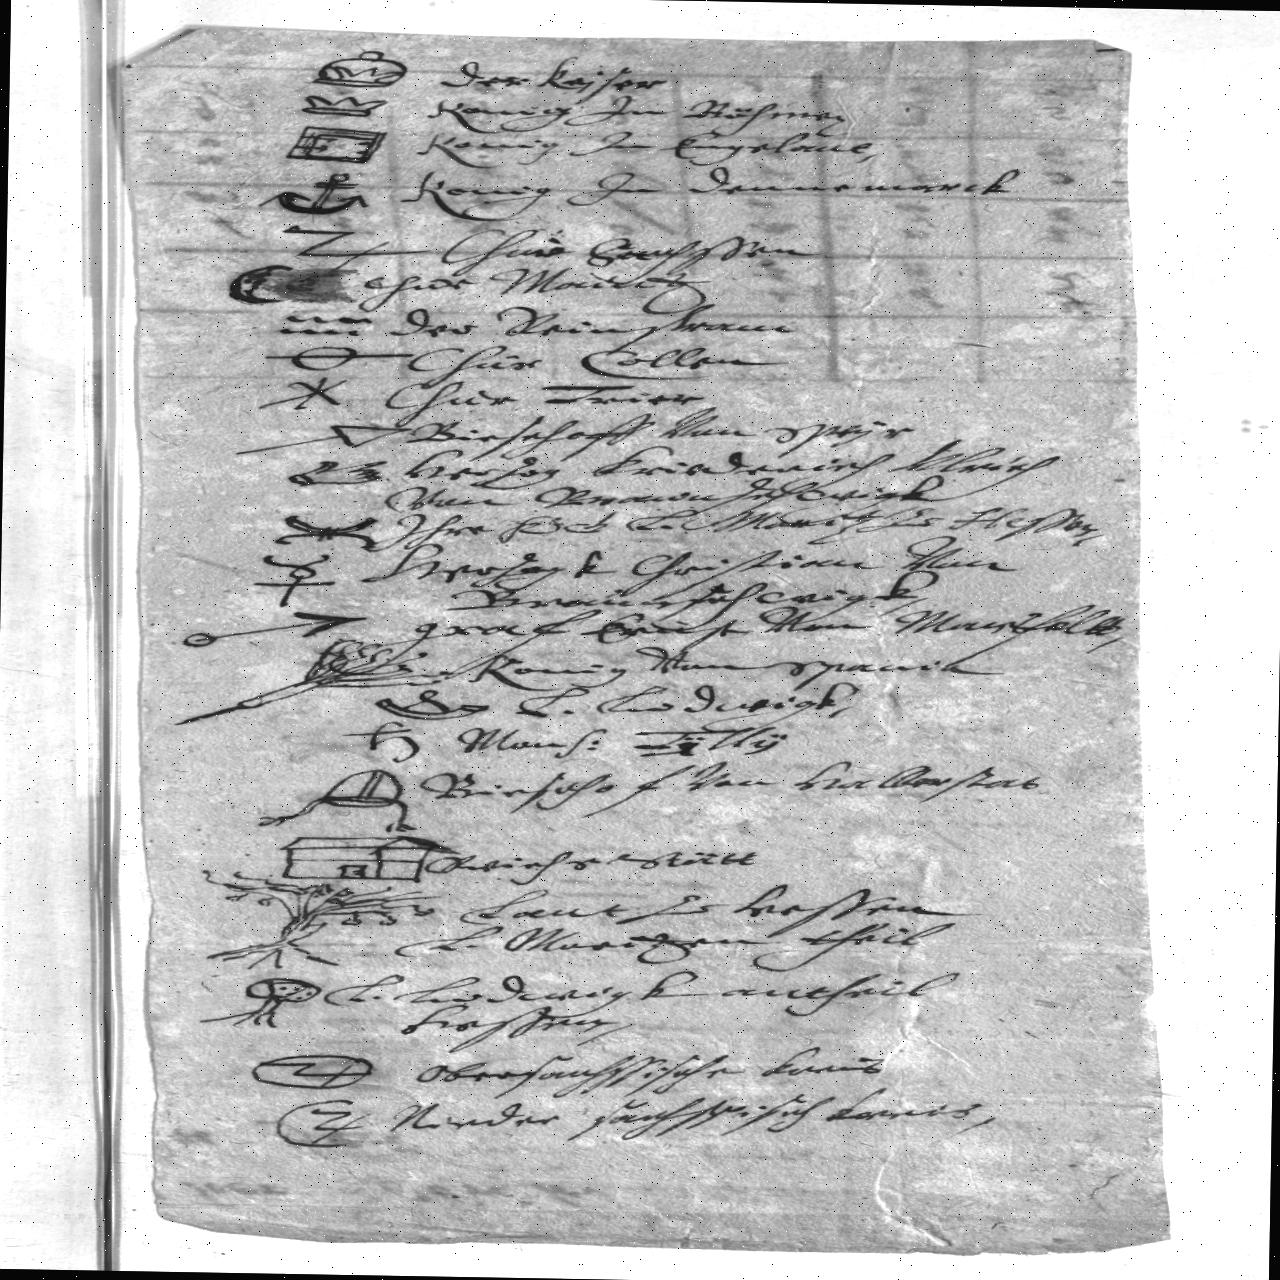 Der Keiser
Konig In Böhmen
Konig In Engelant,
Konig In Dennemarck
Chur Sachssen
Chur Maintz
Der Reinstram
Chur Collen
Chur Trier
Bischoff Van Speyr
Hertzog Friederich Ulrich
Van Braunschweigk
Ihre F G L. Moritz zu Hessen,
Hertzogk Christian Van
Braunschweigk
graf Ernst Van Mansfeltt,
Konig Van Spanien
L. Ludwigk,
Mons: Tilly
Bischof Van Halberstat
Reichs Stätt
Lant zu Hessen
L. Moritzen theil
L. Ludwigk antheil
Hessen,
Obersachssischer Kreis
Nieder sachssisch Kreis,